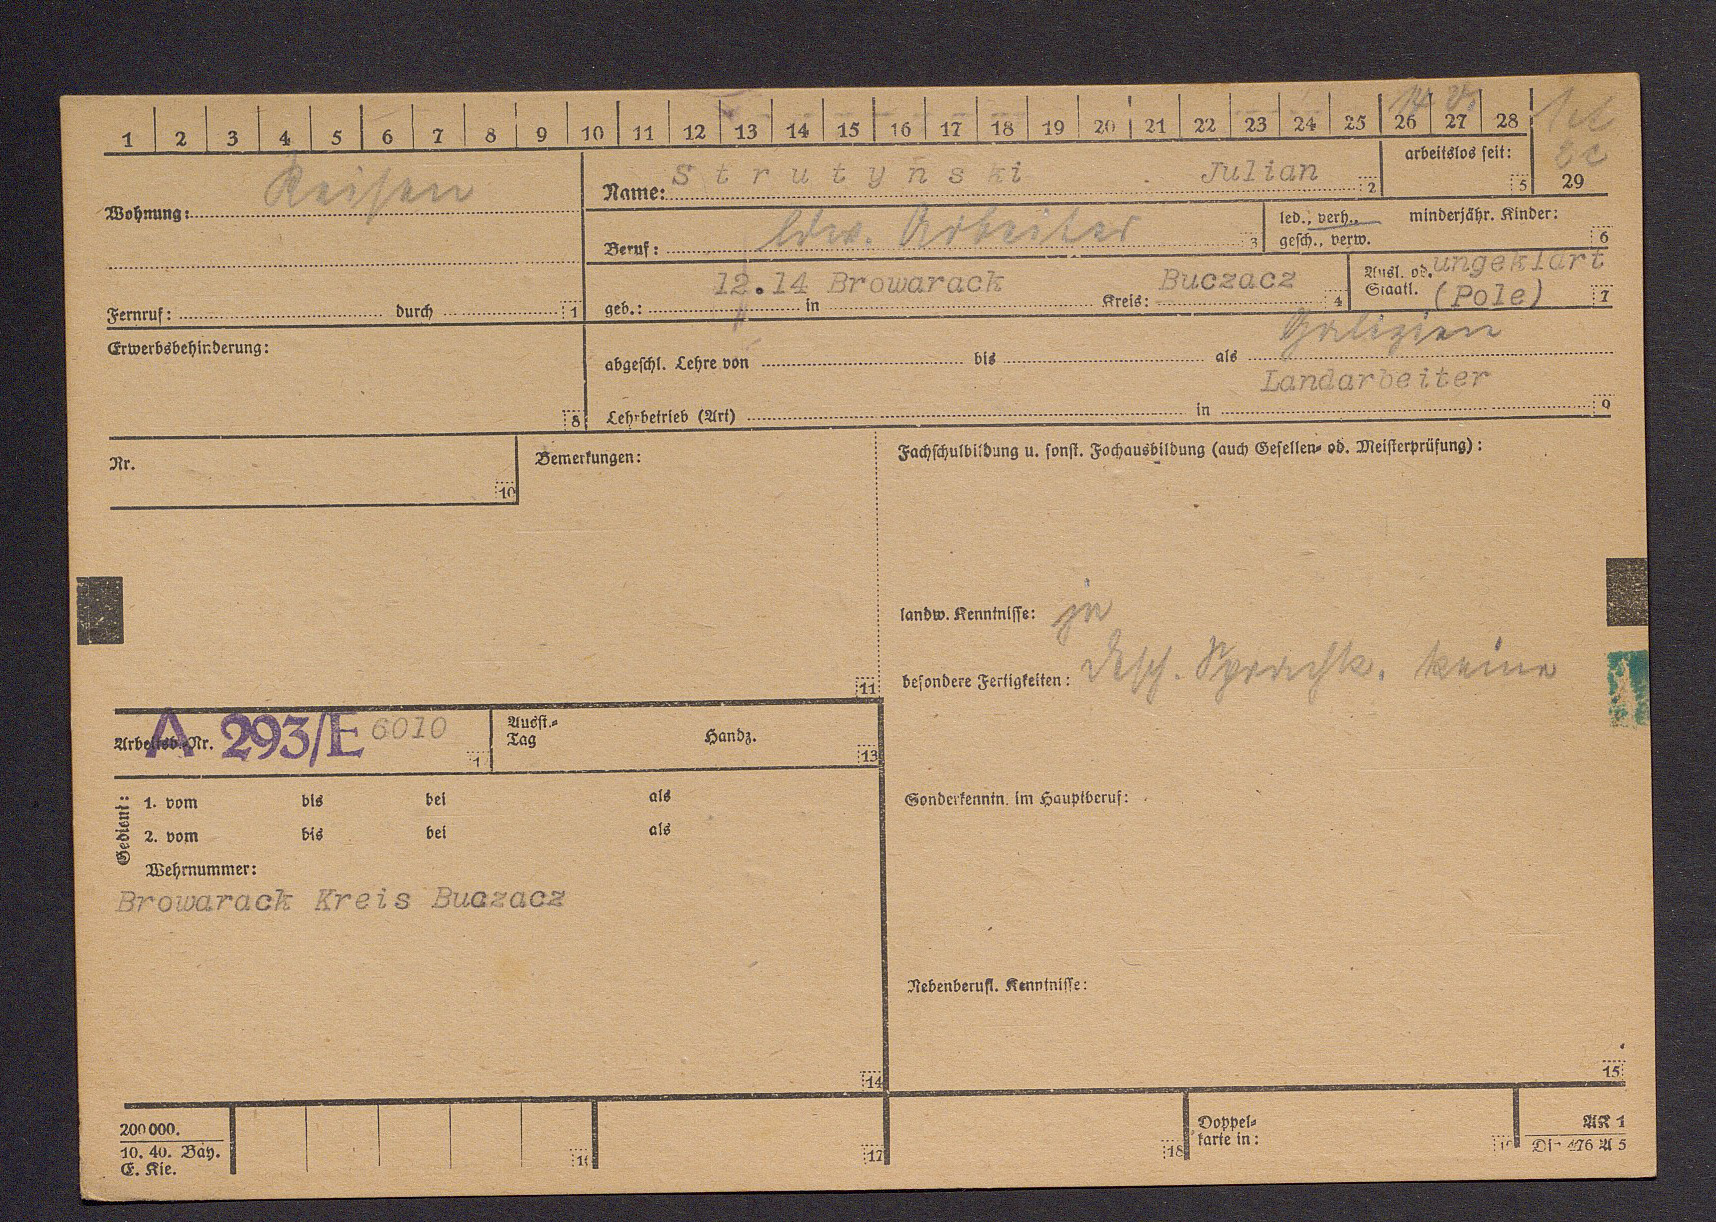 1 2 3 4 5 6 7 8 9 10 11 12 13 14 15 16 17 18 19 20 21 22 23 24 25 26 27 28
14
arbeitslos seit:
5
29
Wohnung: Reisen
Name: Strutyński Julian 2
Beruf: ldw. Arbeiter 3
led., verh., minderjähr. Kinder:
gesch., verw. 6
geb.: 12.14 in Browarack Kreis: Buczacz 4
Ausl. od. Staatl. ungeklärt
(Pole) 7
Fernruf: durch 1
Erwerbsbehinderung:
8
Galizien
abgeschl. Lehre von bis als
Landarbeiter
Lehrbetrieb (Art) in 9
Nr.
10
Bemerkungen:
11
Fachschulbildung u. sonst. Fachausbildung (auch Gesellen- od. Meisterprüfung):
landw. Kenntnisse: ja
besondere Fertigkeiten: dtsch. Sprachk. keine
Arbeitsb.-Nr. A 293/E 6010
Ausst.-
Tag Handz.
13
Gedient:
1. vom bis bei als
2. vom bis bei als
Wehrnummer:
Browarack Kreis Buczacz
14
Sonderkenntn. im Hauptberuf:
Nebenberufl. Kenntnisse:
15
200000.
10. 40. Bay.
E. Kie.
17
18
Doppel-
karte in:
AK 1
Din 476 A 5